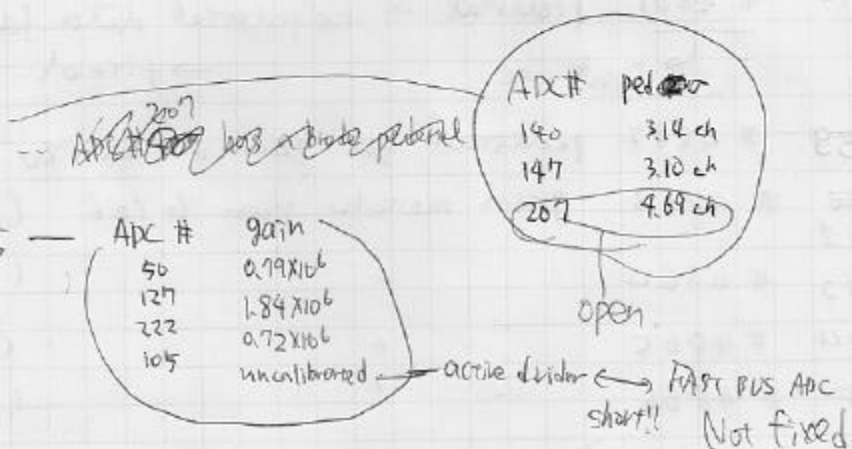 ADC# ped σ
140 3.14 ch
147 3.10 ch
207 4.69 ch
open
207
ADC# has a pedestal
ADC # gain
50 0.79×10⁶
127 1.84×10⁶
222 0.72×10⁶
105 uncalibrated — active divider ↔ FAST BUS ADC
short!! Not fixed